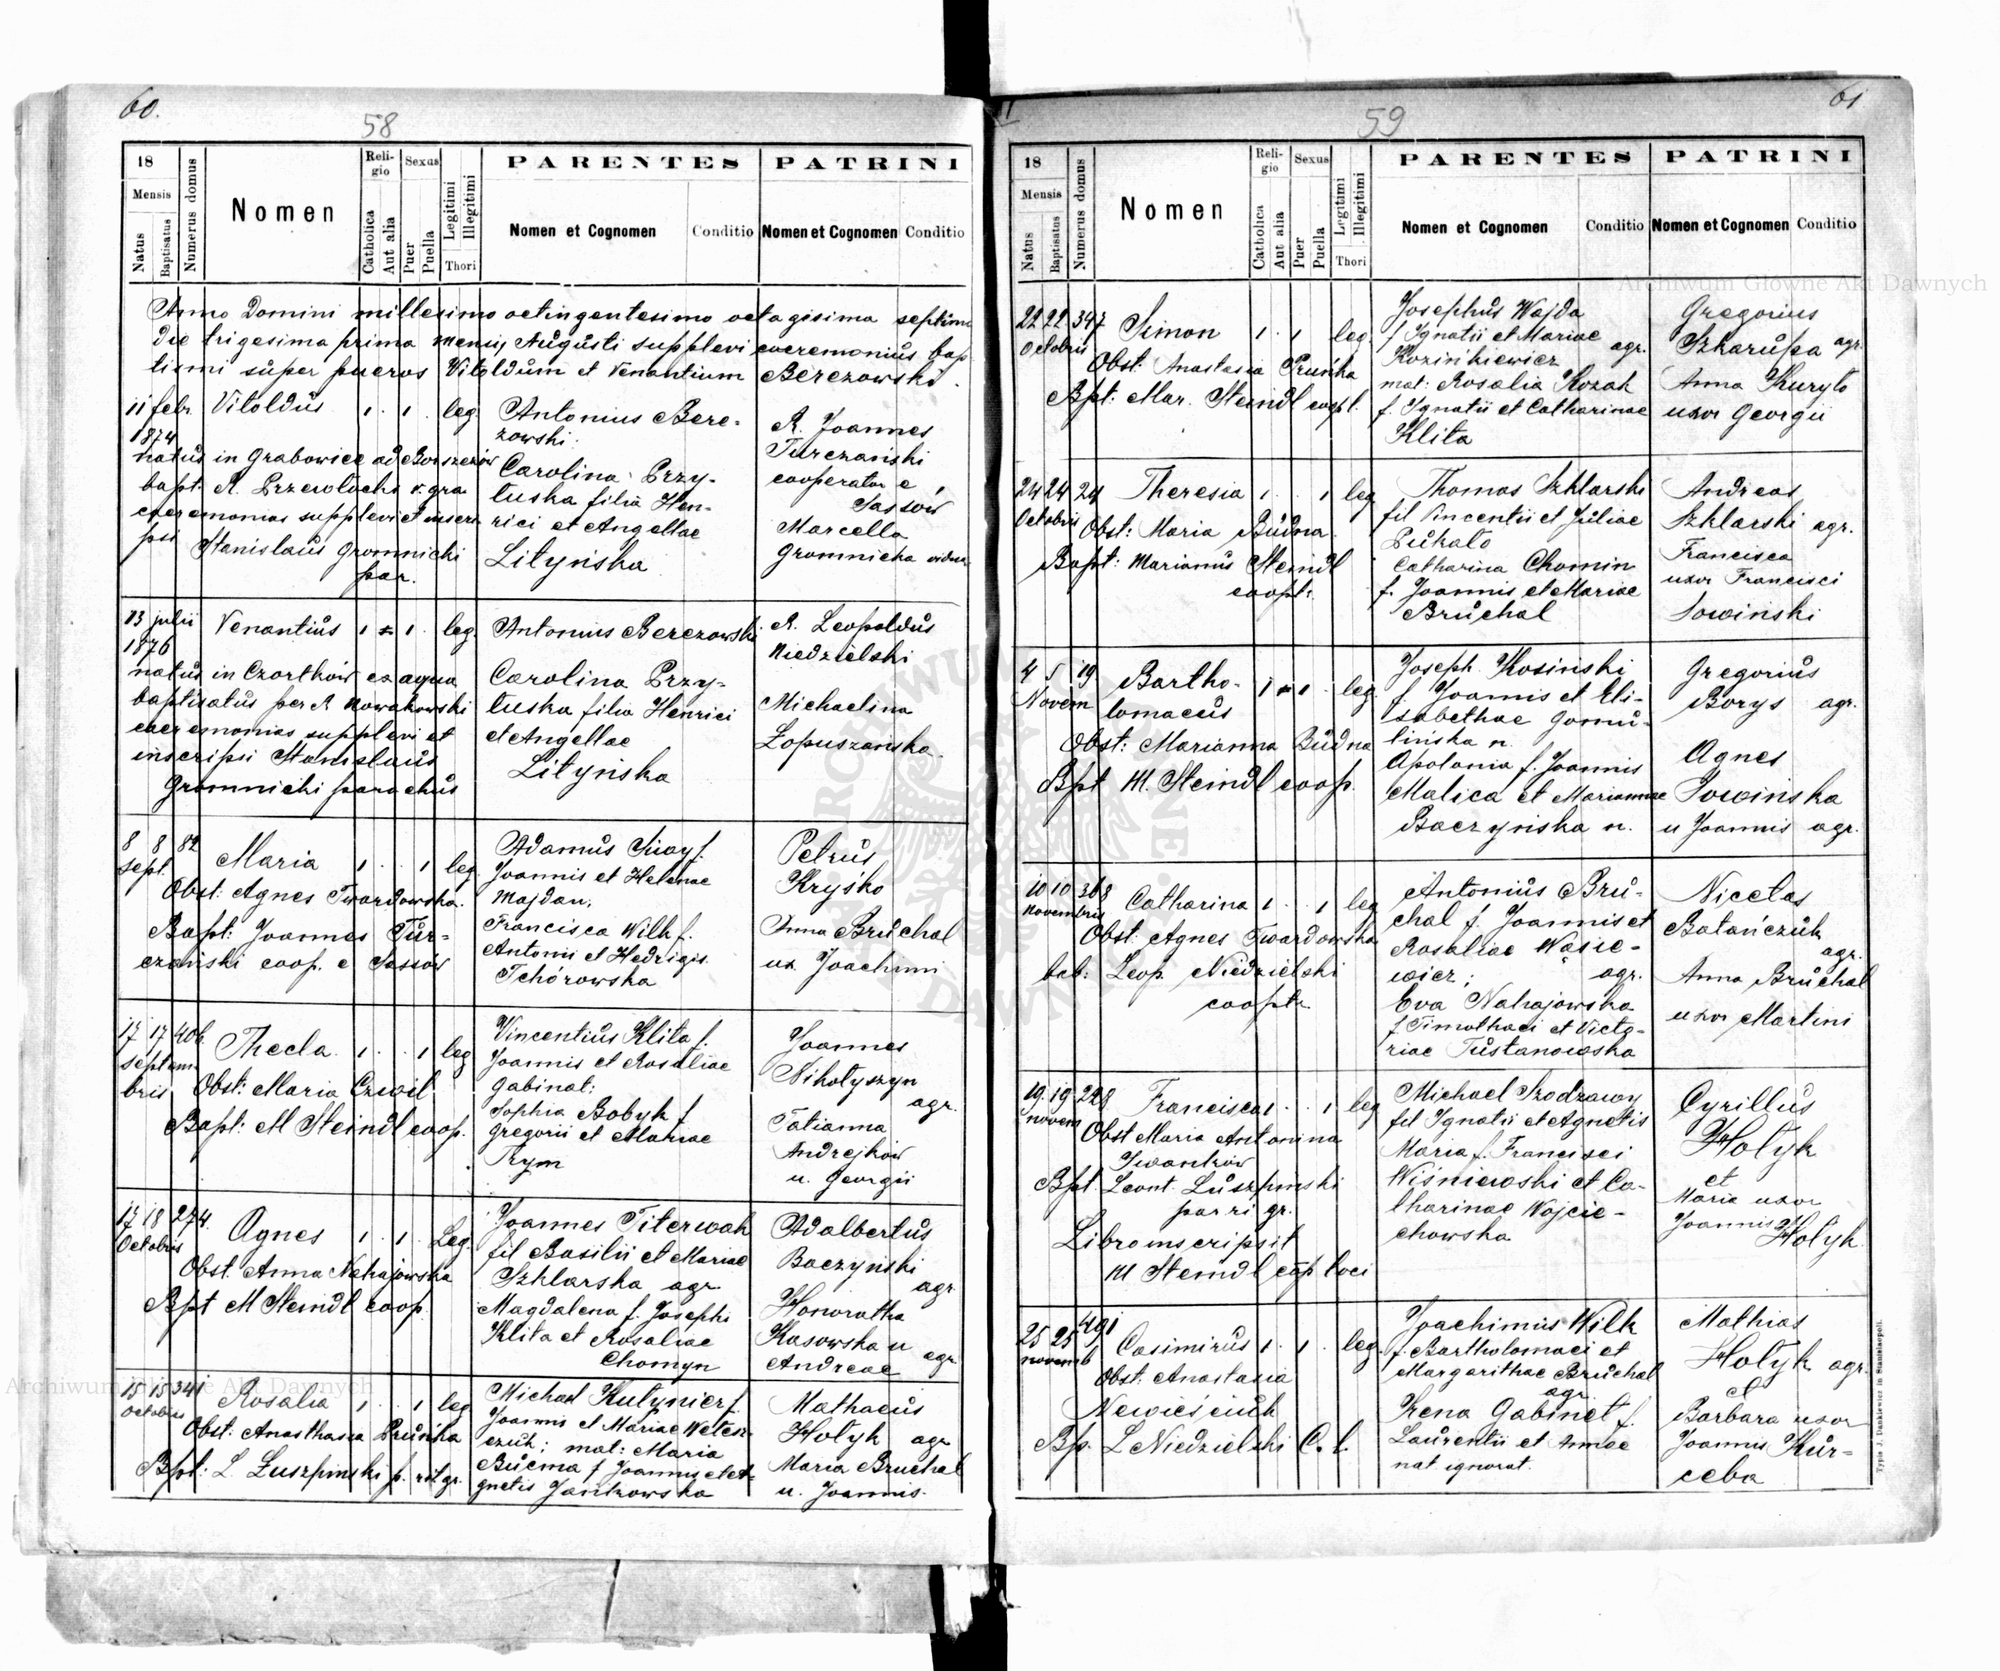 60.
58
18
Mensis
Natus
Baptisatus
Numerus domus
Nomen
Religio
Catholica
Aut alia
Sexus
Puer
Puella
Legitimi
Illegitimi
Thori
PARENTES
Nomen et Cognomen
Conditio
PATRINI
Nomen et Cognomen
Conditio
Anno Domini millesimo octingentesimo octagisimo septimo
Die trigesima prima mensis Augusti supplevi caeremonius bap
tismi super pueros Vitoldum et Venantium Berezowski.
11 febr. Vitoldus 1 . 1 . leg.
1874
natus in Grabowice ad Borszczów
bapt. R. Przewlocki r. gra
caeremonias supplevi et inscri
psi Stanislaus Gromnicki
par.
Antonius Bere-
zowski.
Carolina Przy-
tuska filia Hen-
rici et Angellae
Lityńska
R. Joannes
Turczański
cooperator e
Sassow
Marcella
Gromnicka vidua
13 julii Venantius 1 1 . leg.
1876
natus in Czortków ex aqua
baptisatus per R Nowakowski
caeremonias supplevi et
inscripsi Stanislaus
Gromnicki parochus
Antonius Berezowski
Carolina Przy-
tuska filia Henrici
et Angellae
Lityńska
R. Leopoldus
Niedzielski
Michaelina
Łopuszańska.
8 8 82 Maria 1 . . 1 leg.
Sept.
Obst. Agnes Twardowska.
Bapt: Joannes Tur-
czański coop. e Sassów
Adamus f.
Joannis et Helenae
Majdan;
Francisca Wilk f.
Antonii et Hedvigis
Tchórowska
Petrus
Kryśko
Anna Bruchal
ux. Joachimi
17 17 406 Thecla 1 . . 1 leg
Septem
bris Obst: Maria Czwil
Bapt: M Steindl coop.
Vincentius Klita f.
Joannis et Rosaliae
Gabinat;
Sophia Bobyk f
Gregorii et Mariae
Trym
Joannes
Nikołyszyn
agr.
Tatianna
Andrejków
u. Georgii
17 18 274. Agnes 1 . 1 . Leg.
Octobris
Obst. Anna Nahajowska
Bpt M Steindl coop.
Joannes Titerwak
fil Basilii et Mariae
Szklarska agr
Magdalena f. Josephi
Klita et Rosaliae
Chomyn
Adalbertus
Baczyński
agr.
Honoratha
Kasowska u
agr
Andreae
15 15 341 Rosalia 1 . . 1 leg
Octobris
Obst. Anasthasia Pruńka
Bpt: L. Łuszpinski p. rit gr.
Michael Kutynier f.
Joannis et Mariae
czuk; mat: Maria
Bucma f Joannis et A-
gnetis Jankowska
Mathaeus
Hołyk agr
Maria Bruchal
u. Joannis.
61
59
18
Mensis
Natus
Baptisatus
Numerus domus
Nomen
Religio
Catholica
Aut alia
Sexus
Puer
Puella
Legitimi
Illegitimi
Thori
PARENTES
Nomen et Cognomen
Conditio
PATRINI
Nomen et Cognomen
Conditio
22 22 347 Simon 1 . 1 leg.
Octobris
Obst: Anastasia Pruńka
Bpt: Mar. Steindl coopt.
Josephus Wajda
f Ignatii et Mariae
agr.
Kozińkiewicz
mat: Rosalia Kozak
f. Ignatii et Catharinae
Klita
Gregorius
Szkarupa agr.
Anna Kuryło
uxor Georgii
24 24 24 Theresia 1 . . 1 leg
Octobris
Obst: Maria Budna
Bapt: Marianus Steindl
coopt.
Thomas Szklarski
fil Vincentii et Juliae
Pukało
Catharina Chomin
f. Joannis et Mariae
Bruchal
Andreas
Szklarski agr.
Francisca
uxor Francisci
Sowiński
4 5 19 Bartho- 1 1 . leg
Novem lomaeus
Obst: Marianna Budna
Bpt M. Steindl coop.
Joseph Kosiński
f Joannis et Eli-
sabethae Gomu-
lińska n.
Apolonia f. Joannis
Malica et Mariannae
Baczyńska n.
Gregorius
Borys agr.
Agnes
Sowińska
u Joannis agr.
10 10 368 Catharina 1 . . 1 leg
Novembris
Obst. Agnes Twardowska
bab: Leop Niedzielski
cooptr
Antonius Bru-
chal f. Joannis et
Rosaliae Wąsie-
wicz; agr.
Eva Nahajowska
f Timothaei et Victo-
riae Tustanowska
Nicetas
Batańczuk
agr.
Anna Bruchal
uxor Martini
19 19 228 Francisca 1 . . 1 leg
Novem
Obst Maria Antonina
Iwanków
Bpt. Leont. Łuszpinski
par ri gr.
Libro inscripsit
M Steindl coop loci
Michael Szodzawy
fil Ignatii et Agnetis
Maria f. Francisci
Wiśniewski et Ca-
tharinae Wojcie-
chowska
Cyrillus
Hołyk
et
Maria uxor
Joannis Hołyk
25 25 491 Casimirus 1 . 1 . leg.
novemb
Obst. Anastasia
Newieściuk
Bp. L Niedzielski C. l.
Joachimus Wilk
f. Bartholomaei et
Margarithae Bruchal
agr.
Irena Gabinet f.
Laurentii et Annae
nat ignorat.
Mathias
Hołyk agr.
et
Barbara uxor
Joannis Kur-
ceba
Typis J. Dankiewicz in Stanislaopoli.
Archiwum Główne Akt Dawnych
Archiwum Główne Akt Dawnych
ARCHIWUM GŁÓWNE AKT DAWNYCH